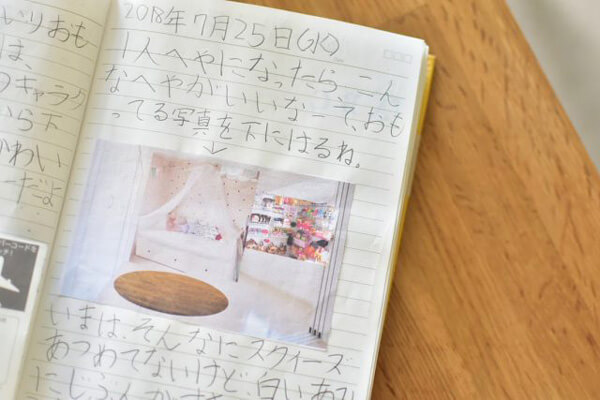 いりおも
は
のキャラク
いら下
かわい
だよ
バーコードを
2018年7月25日(水)
1人へやになったら、こん
なへやがいいなーて、おも
ってる写真を下にはるね。
いまは、そんなにスクイーズ
あつめてないけど、白いあみ
にじぶんが